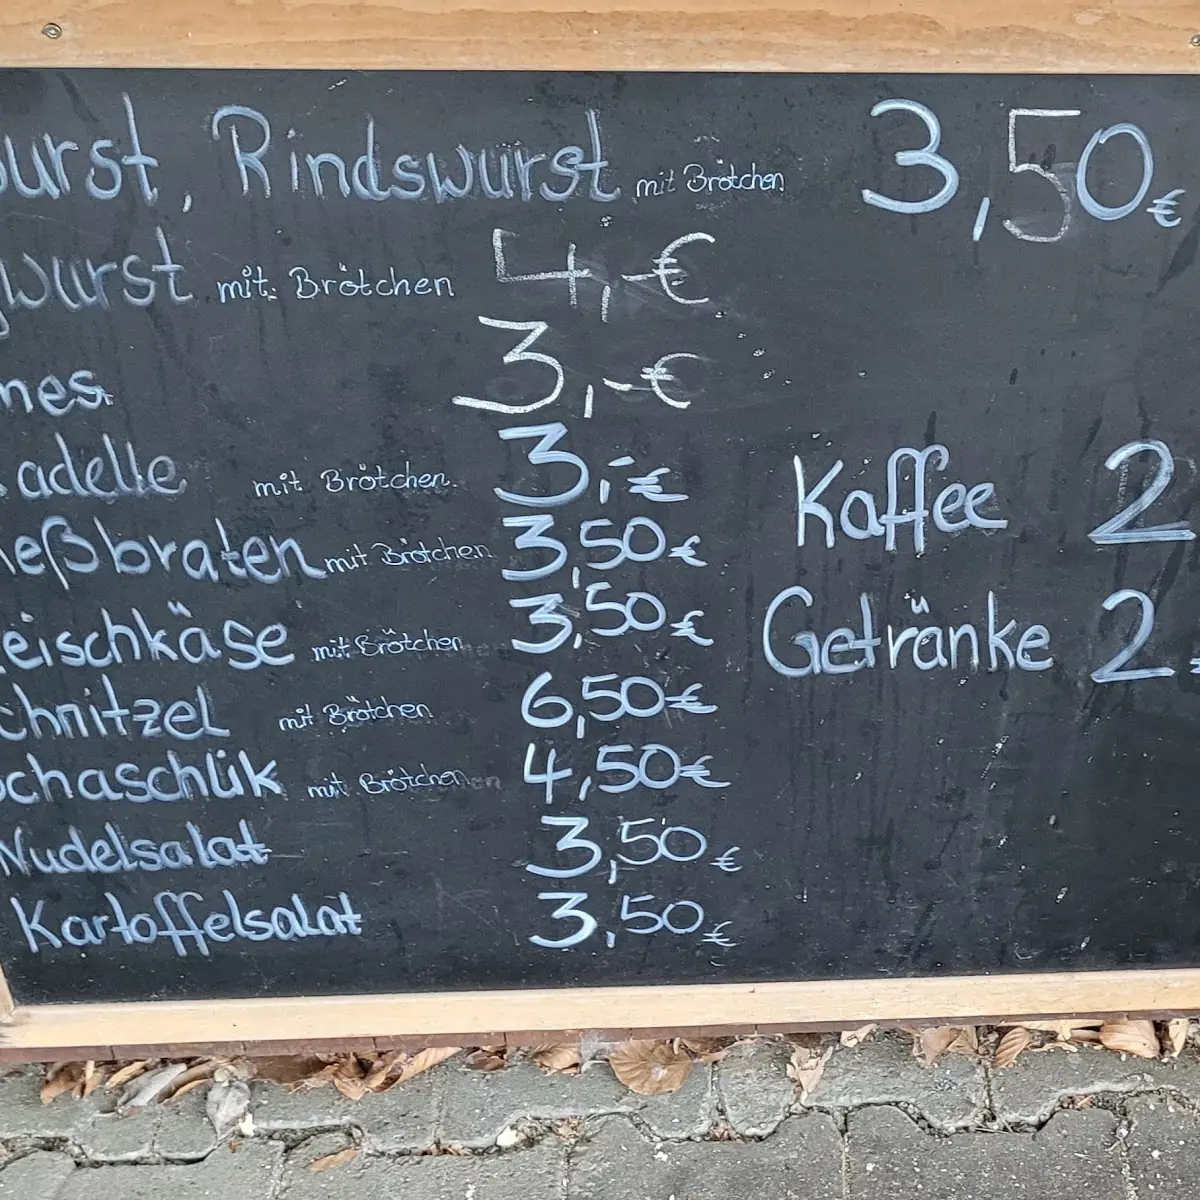 urst, Rindswurst mit Brötchen 3,50€
wurst mit Brötchen 4,-€
nes 3,-€
adelle mit Brötchen 3,-€
eßbraten mit Brötchen 3,50€
eischkäse mit Brötchen 3,50€
chnitzel mit Brötchen 6,50€
chaschlik mit Brötchen 4,50€
Nudelsalat 3,50€
Kartoffelsalat 3,50€
Kaffee 2
Getränke 2